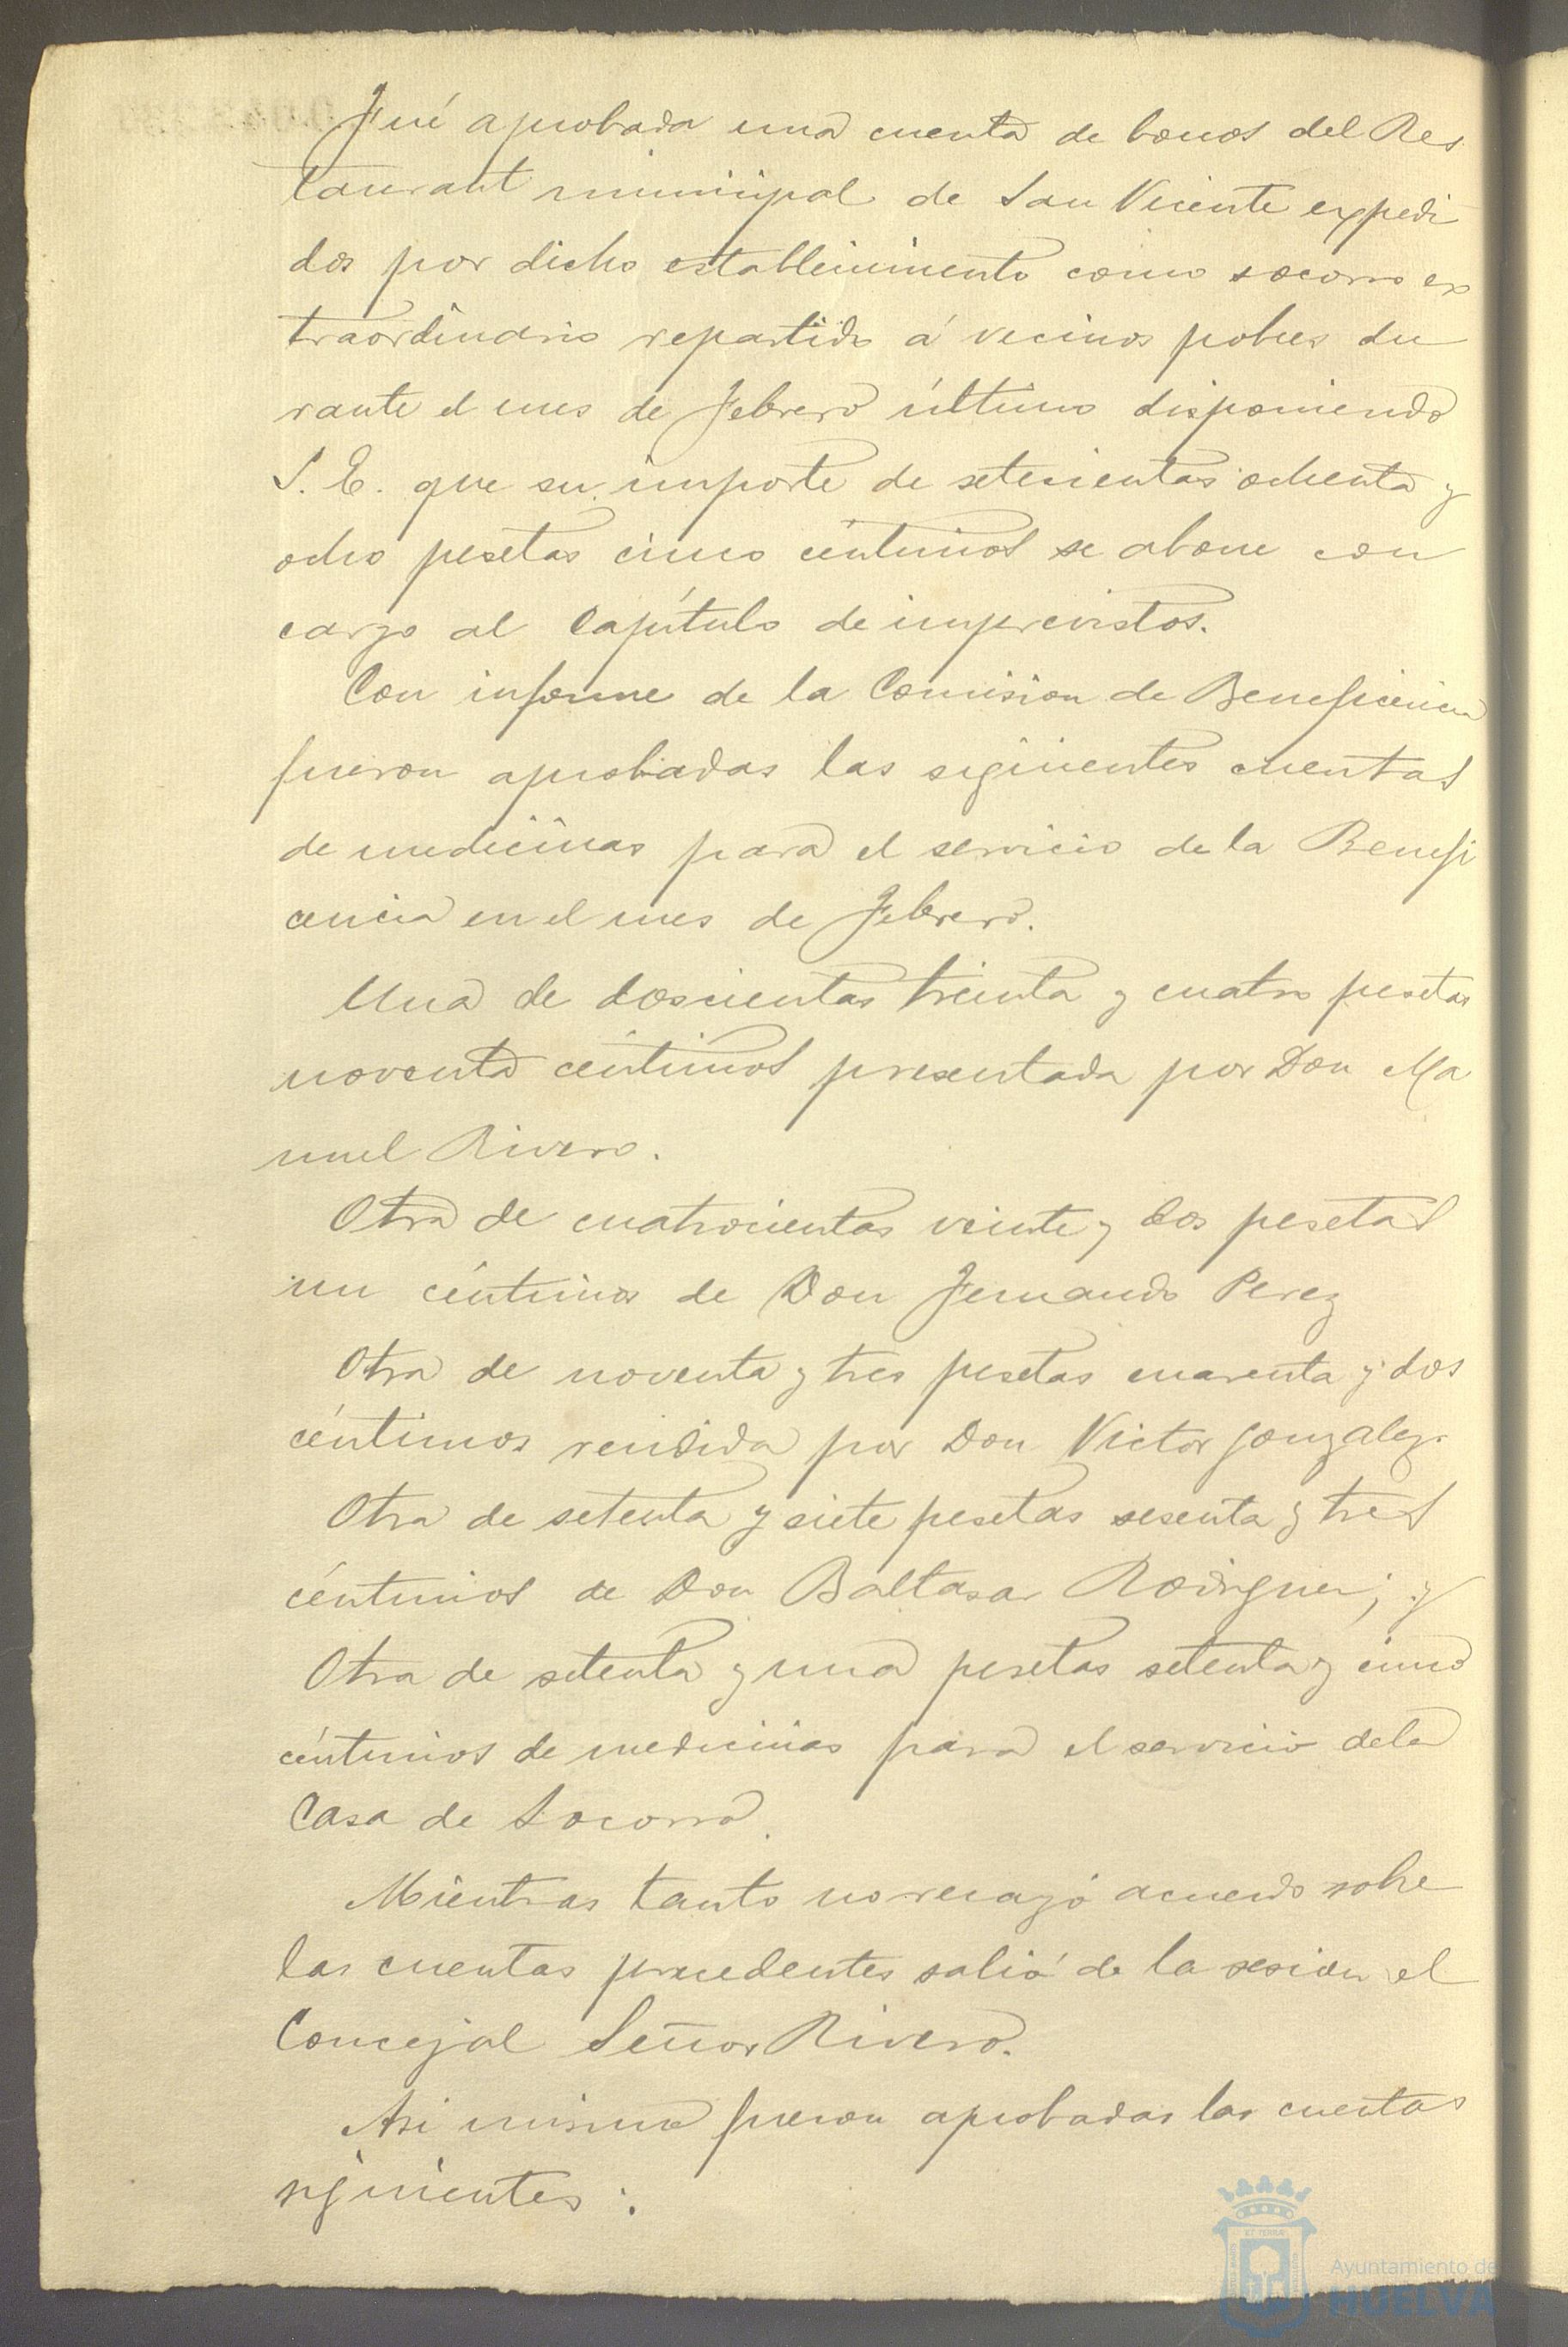 Fué aprobada una cuenta de bonos del Res
taurant municipal de San Vicente expedi
dos por dicho establecimiento como socorro ex
traordinario repartido á vecinos pobres du
rante el mes de Febrero último disponiendo
S. E. que su importe de setecientas ochenta y
ocho pesetas cinco céntimos se abone con
cargo al Capítulo de imprevistos.
Con informe de la Comision de Beneficencia
fueron aprobadas las siguientes cuentas
de medicinas para el servicio de la Benefi
cencia en el mes de Febrero.
Una de doscientas treinta y cuatro pesetas
noventa céntimos presentada por Don Ma
nuel Rivero.
Otra de cuatrocientas veinte y dos pesetas
un céntimos de Don Fernando Perez
Otra de noventa y tres pesetas cuarenta y dos
céntimos rendida por Don Victor Gonzalez.
Otra de setenta y siete pesetas sesenta y tres
céntimos de Don Baltasar Rodriguez; y
Otra de setenta y una pesetas setenta y cinco
céntimos de medicinas para el servicio de la
Casa de Socorro.
Mientras tanto no recayó acuerdo sobre
las cuentas precedentes salió de la sesion el
Concejal Señor Rivero.
Asi mismo fueron aprobadas las cuentas
siguientes:
Ayuntamiento de
HUELVA